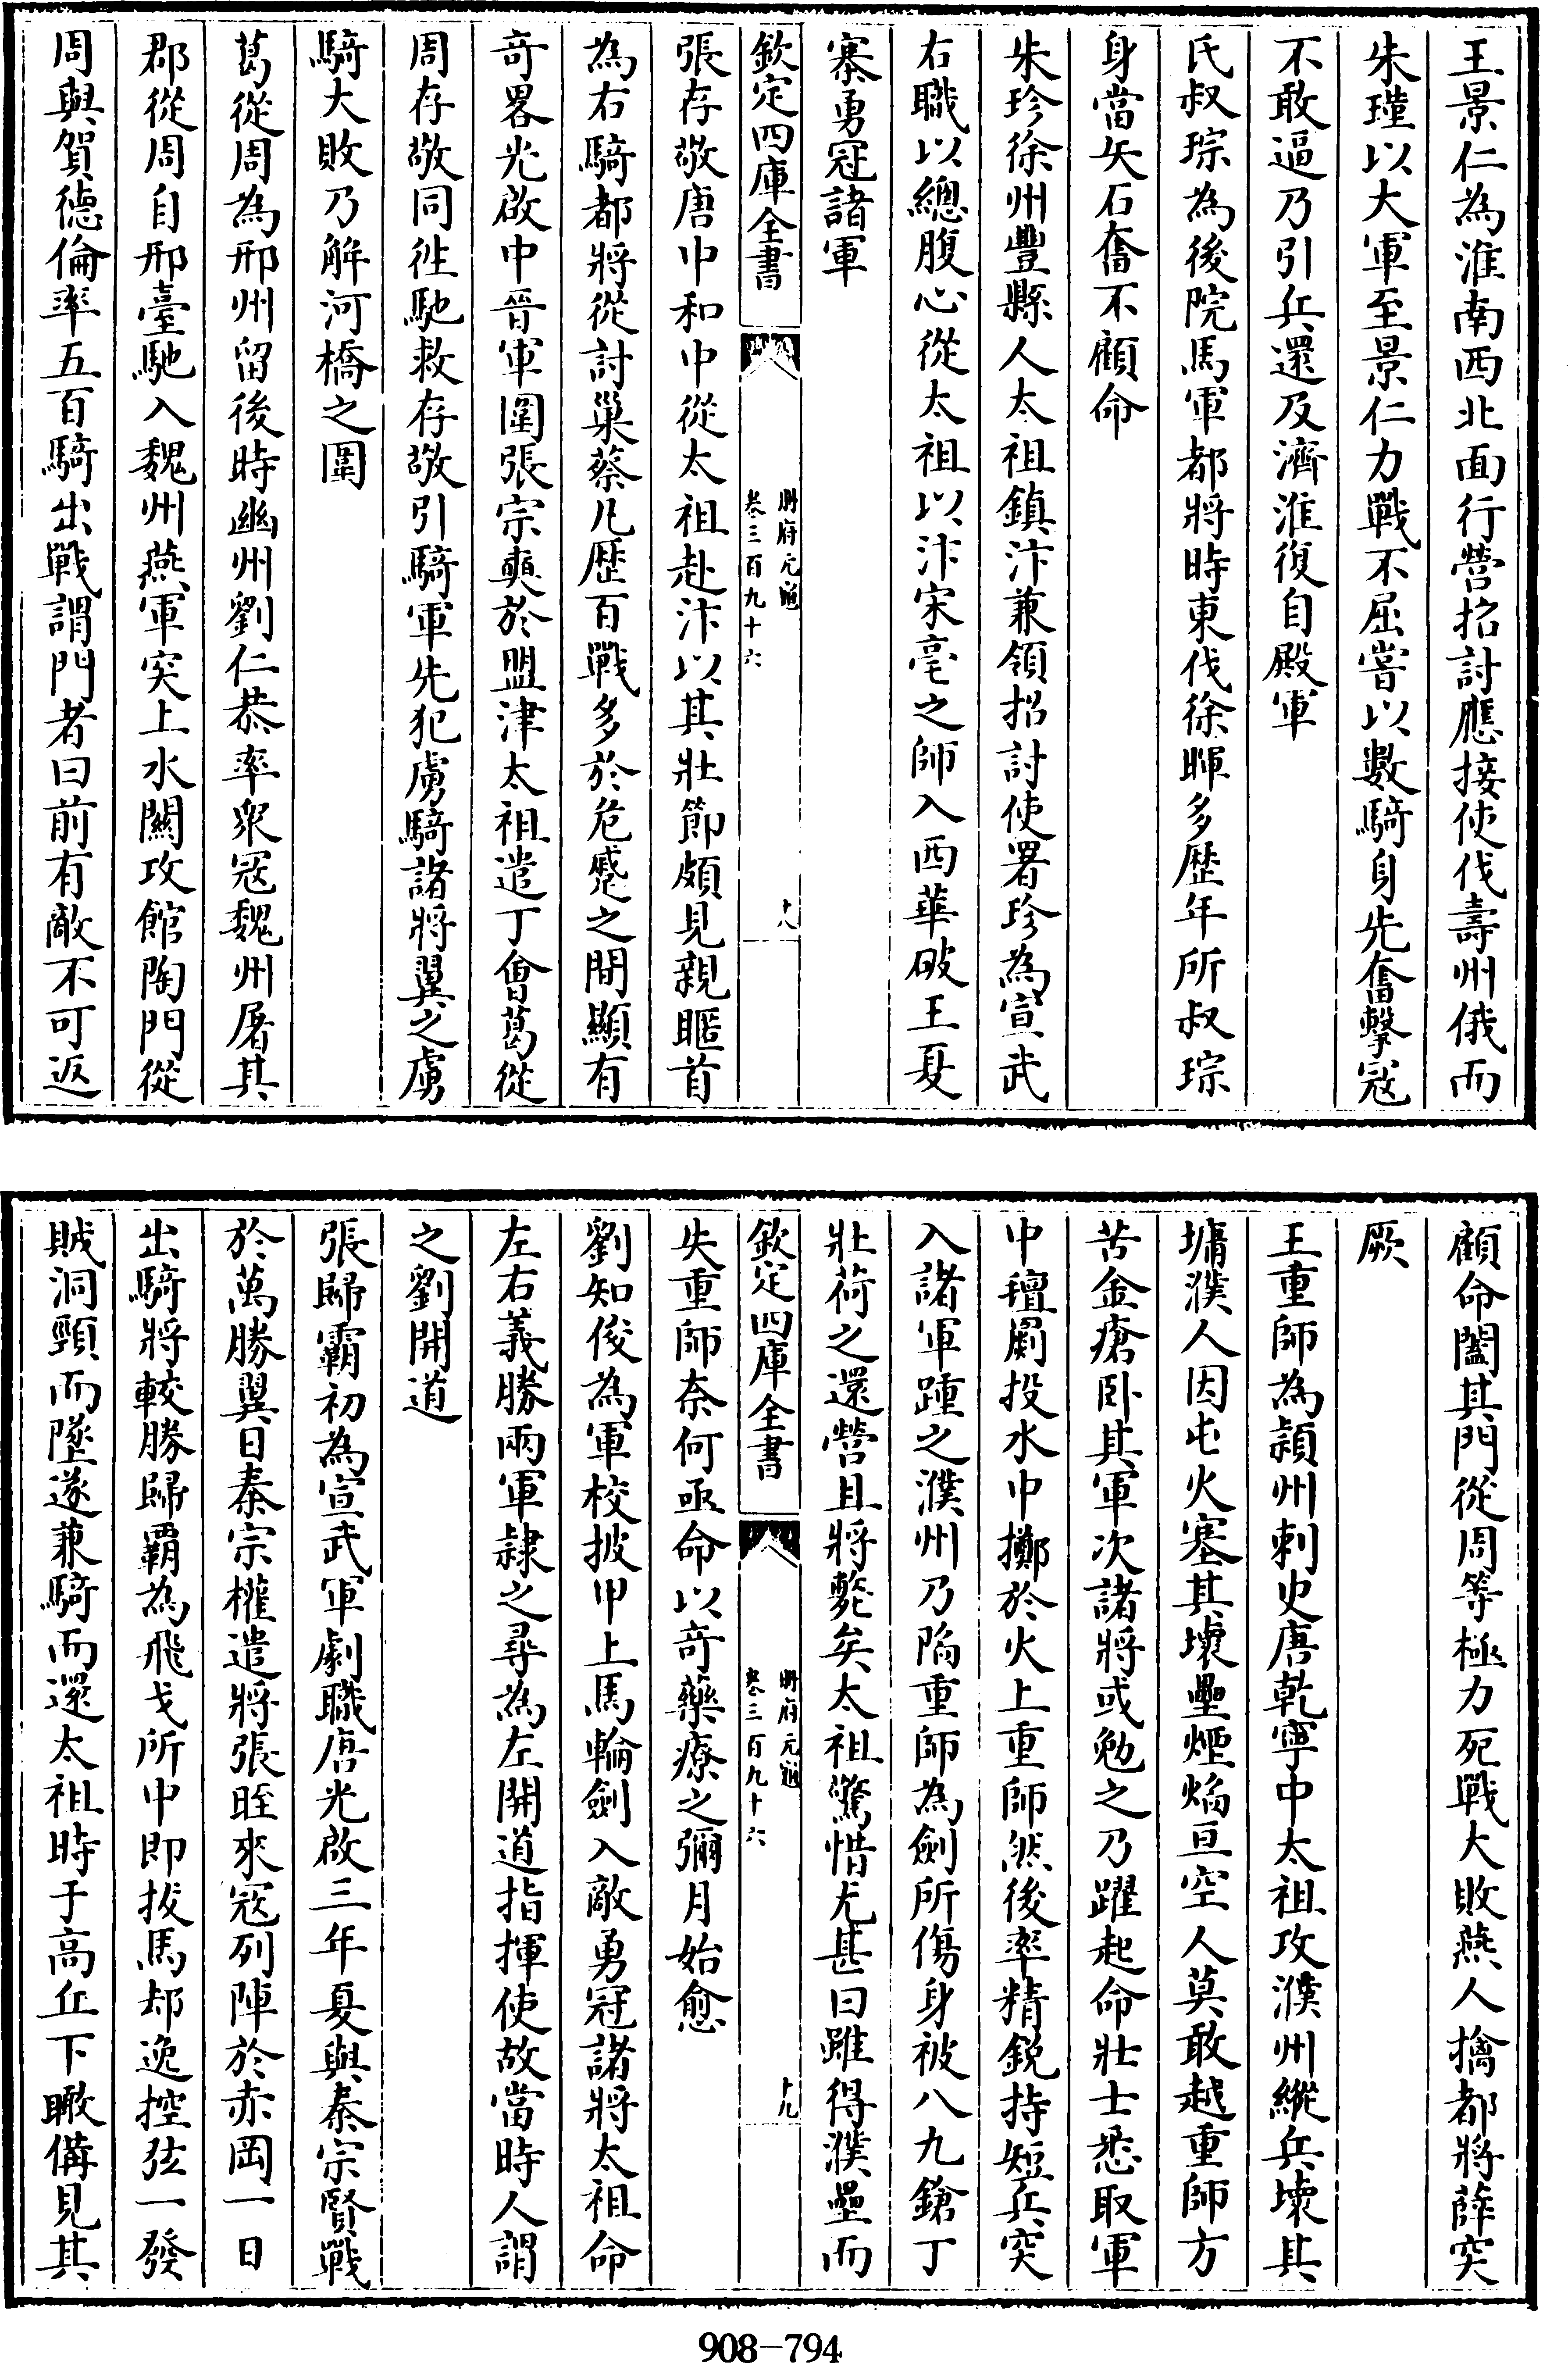 王景仁為淮南西北面行營招討應接使伐壽州俄而
朱瑾以大軍至景仁力戰不屈嘗以數騎身先奮擊寇
不敢逼乃引兵還及濟淮復自殿軍
氏叔琮為後院馬軍都將時東伐徐鄆多歷年所叔琮
身當矢石奮不顧命
朱珍徐州豐縣人太祖鎮汴兼領招討使署珍為宣武
右職以總腹心從太祖以汴宋亳之師入西華破王夏
寨勇冠諸軍
欽定四庫全書
冊府元龜
卷三百九十六
十八
張存敬唐中和中從太祖赴汴以其壯節頗見親暱首
為右騎都將從討巢蔡凡歷百戰多於危蹙之間顯有
奇畧光啟中晉軍圍張宗奭於盟津太祖遣丁會葛從
周存敬同徃馳救存敬引騎軍先犯虜騎諸將翼之虜
騎大敗乃解河橋之圍
葛從周為邢州留後時幽州劉仁恭率衆寇魏州屠其
郡從周自邢臺馳入魏州燕軍突上水關攻館陶門從
周與賀德倫率五百騎出戰謂門者曰前有敵不可返
顧命闔其門從周等極力死戰大敗燕人擒都將薛突
厥
王重師為潁州刺史唐乾寧中太祖攻濮州縱兵壞其
墉濮人因屯火塞其壞壘煙焰亘空人莫敢越重師方
苦金瘡卧其軍次諸將或勉之乃躍起命壯士悉取軍
中氊罽投水中擲於火上重師然後率精銳持短兵突
入諸軍踵之濮州乃陷重師為劍所傷身被八九鎗丁
壯荷之還營且將斃矣太祖驚惜尤甚曰雖得濮壘而
欽定四庫全書
冊府元龜
卷三百九十六
十九
失重師奈何亟命以奇藥療之彌月始愈
劉知俊為軍校披甲上馬輪劍入敵勇冠諸將太祖命
左右義勝兩軍隷之尋為左開道指揮使故當時人謂
之劉開道
張歸霸初為宣武軍劇職唐光啟三年夏與秦宗賢戰
於萬勝翼日秦宗權遣將張晊來寇列陣於赤岡一日
出騎將較勝歸霸為飛戈所中即拔馬却逸控弦一發
賊洞頸而墜遂兼騎而還太祖時于高丘下瞰備見其
908-794